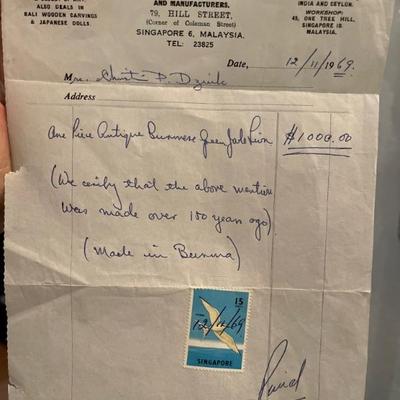 ALSO DEALS IN
BALI WOODEN CARVINGS
& JAPANESE DOLLS.
AND MANUFACTURERS.
79, HILL STREET,
(Corner of Coleman Street)
SINGAPORE 6, MALAYSIA.
TEL: 23825
INDIA AND CEYLON.
WORKSHOP:
43, ONE TREE HILL,
SINGAPORE 19.
MALAYSIA.
Date, 12/11/1969.
M P.
Address
One Piece Antique Burmese Green Jade Lion $1000.00
(We certify that the above mention
was made over 100 years ago)
(Made in Burma)
15
12/11/69
SINGAPORE
Paid